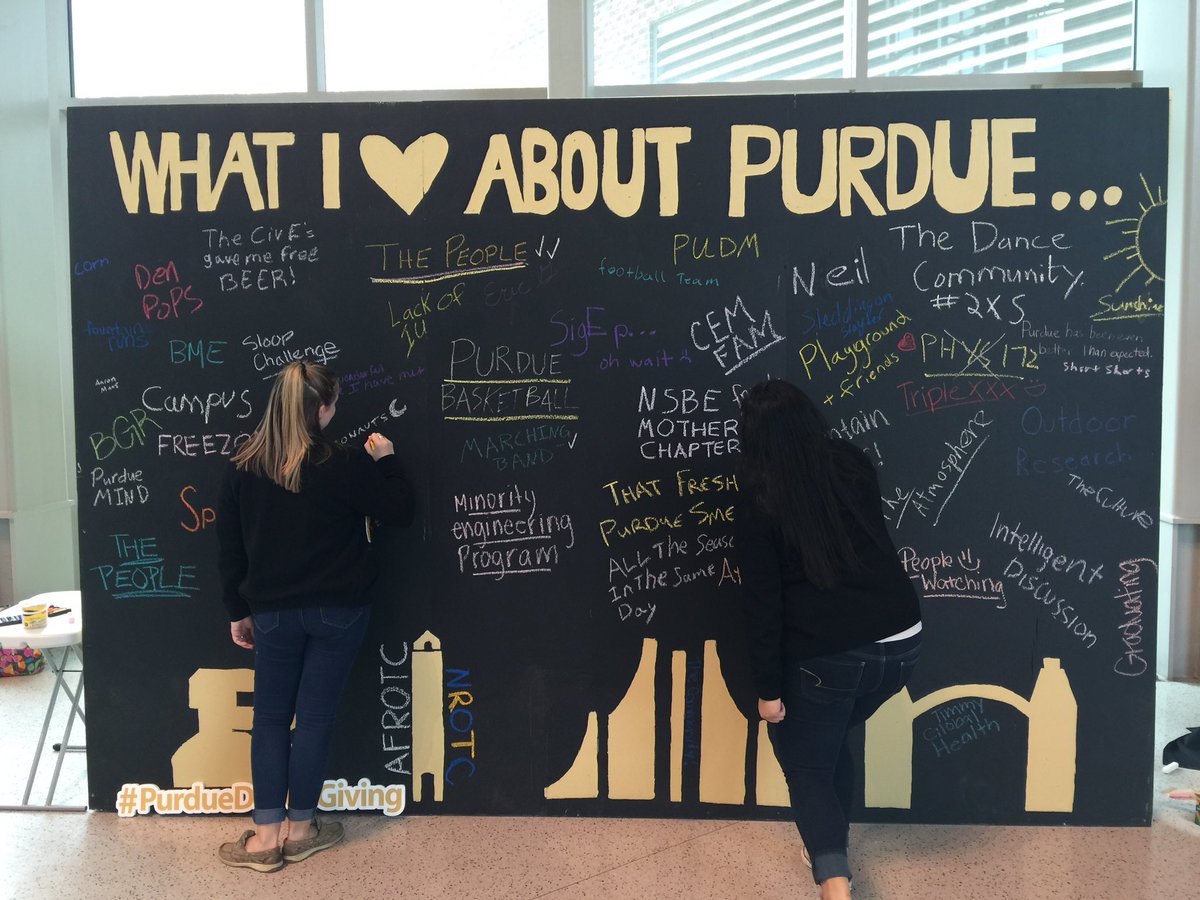 WHAT I ♥ ABOUT PURDUE...
corn
Den
Pops
The CivE's
gave me free
BEER!
THE PEOPLE
Lack of
IU
Eric
football Team
PUDM
Neil
The Dance
Community.
#2XS
Sunshine
fountain
runs
BME
Sloop
Challenge
SigEp...
oh wait
CEM
FAM
Sledding on
slayter
Playground
+ friends
PHYS 172
Purdue has been even
better than expected.
short shorts
Triple XXX
wonderful
I have met
PURDUE
BASKETBALL
Campus
FREEZO
BGR
Purdue
MIND
ONAUTS
MARCHING
BAND
NSBE
MOTHER
CHAPTER
Outdoor
Research
The Culture
The
Atmosphere
Sp
THE
PEOPLE
Minority
engineering
Program
THAT FRESH
PURDUE SME
ALL The Seas
In The Same
Day
People
Watching
Intelligent
Discussion
Graduating
AFROTC
NROTC
Jimmy
Global
Health
#PurdueD Giving